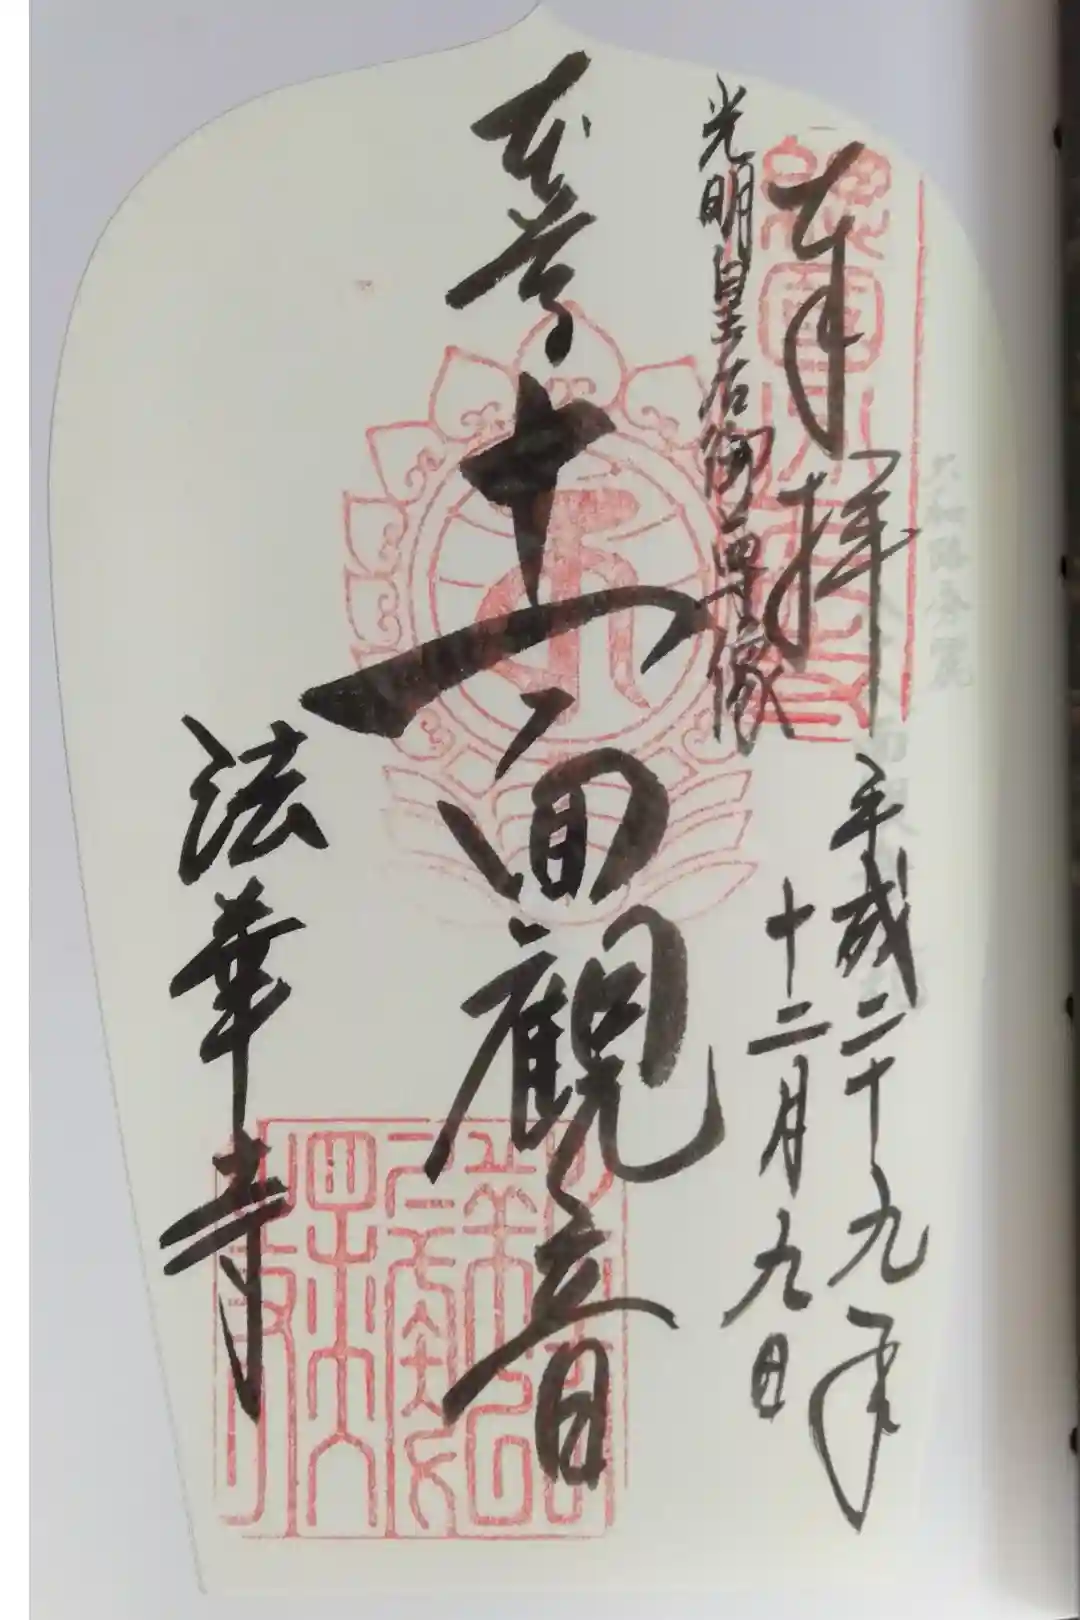 奉拝
平成二十九年
十二月九日
光明皇后御尊像
本尊十一面観音
法華寺